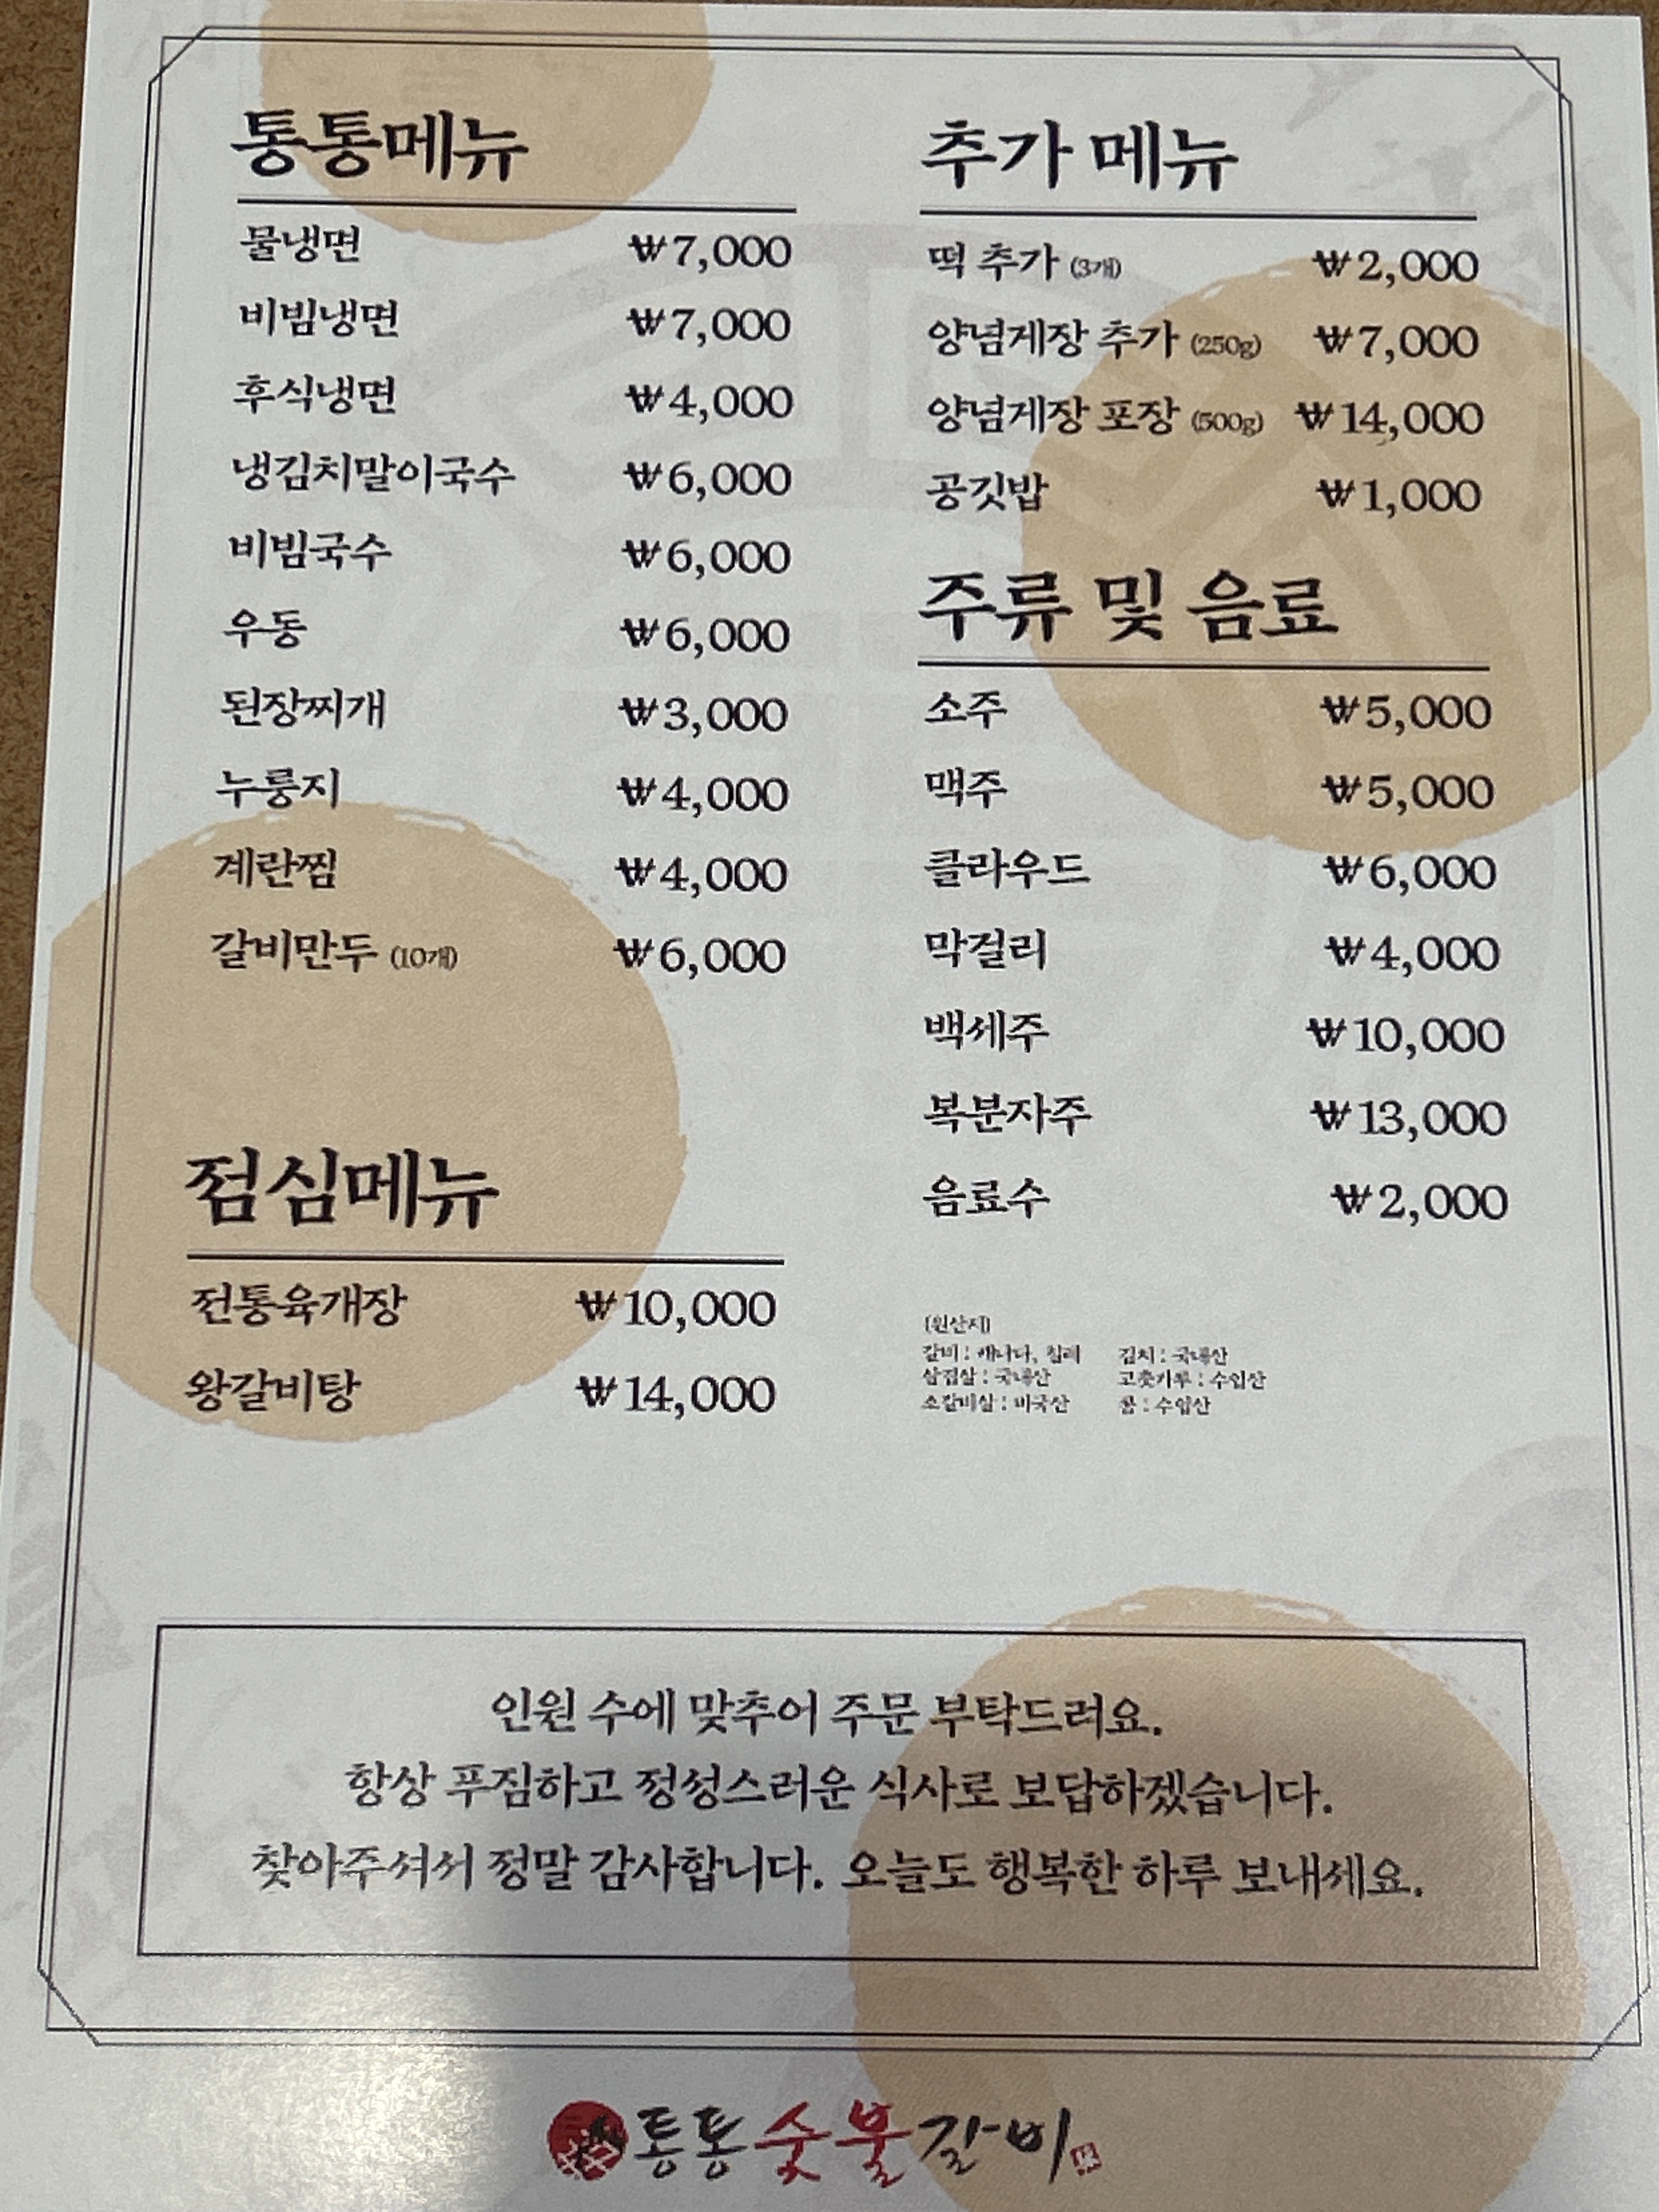 통통메뉴
물냉면 ₩7,000
비빔냉면 ₩7,000
후식냉면 ₩4,000
냉김치말이국수 ₩6,000
비빔국수 ₩6,000
우동 ₩6,000
된장찌개 ₩3,000
누룽지 ₩4,000
계란찜 ₩4,000
갈비만두 (10개) ₩6,000
점심메뉴
전통육개장 ₩10,000
왕갈비탕 ₩14,000
추가 메뉴
떡 추가 (3개) ₩2,000
양념게장 추가 (250g) ₩7,000
양념게장 포장 (500g) ₩14,000
공깃밥 ₩1,000
주류 및 음료
소주 ₩5,000
맥주 ₩5,000
클라우드 ₩6,000
막걸리 ₩4,000
백세주 ₩10,000
복분자주 ₩13,000
음료수 ₩2,000
(원산지)
갈비 : 캐나다, 칠레 김치 : 국내산
삼겹살 : 국내산 고춧가루 : 수입산
소갈비살 : 미국산 콩 : 수입산
인원 수에 맞추어 주문 부탁드려요.
항상 푸짐하고 정성스러운 식사로 보답하겠습니다.
찾아주셔서 정말 감사합니다. 오늘도 행복한 하루 보내세요.
통통숯불갈비